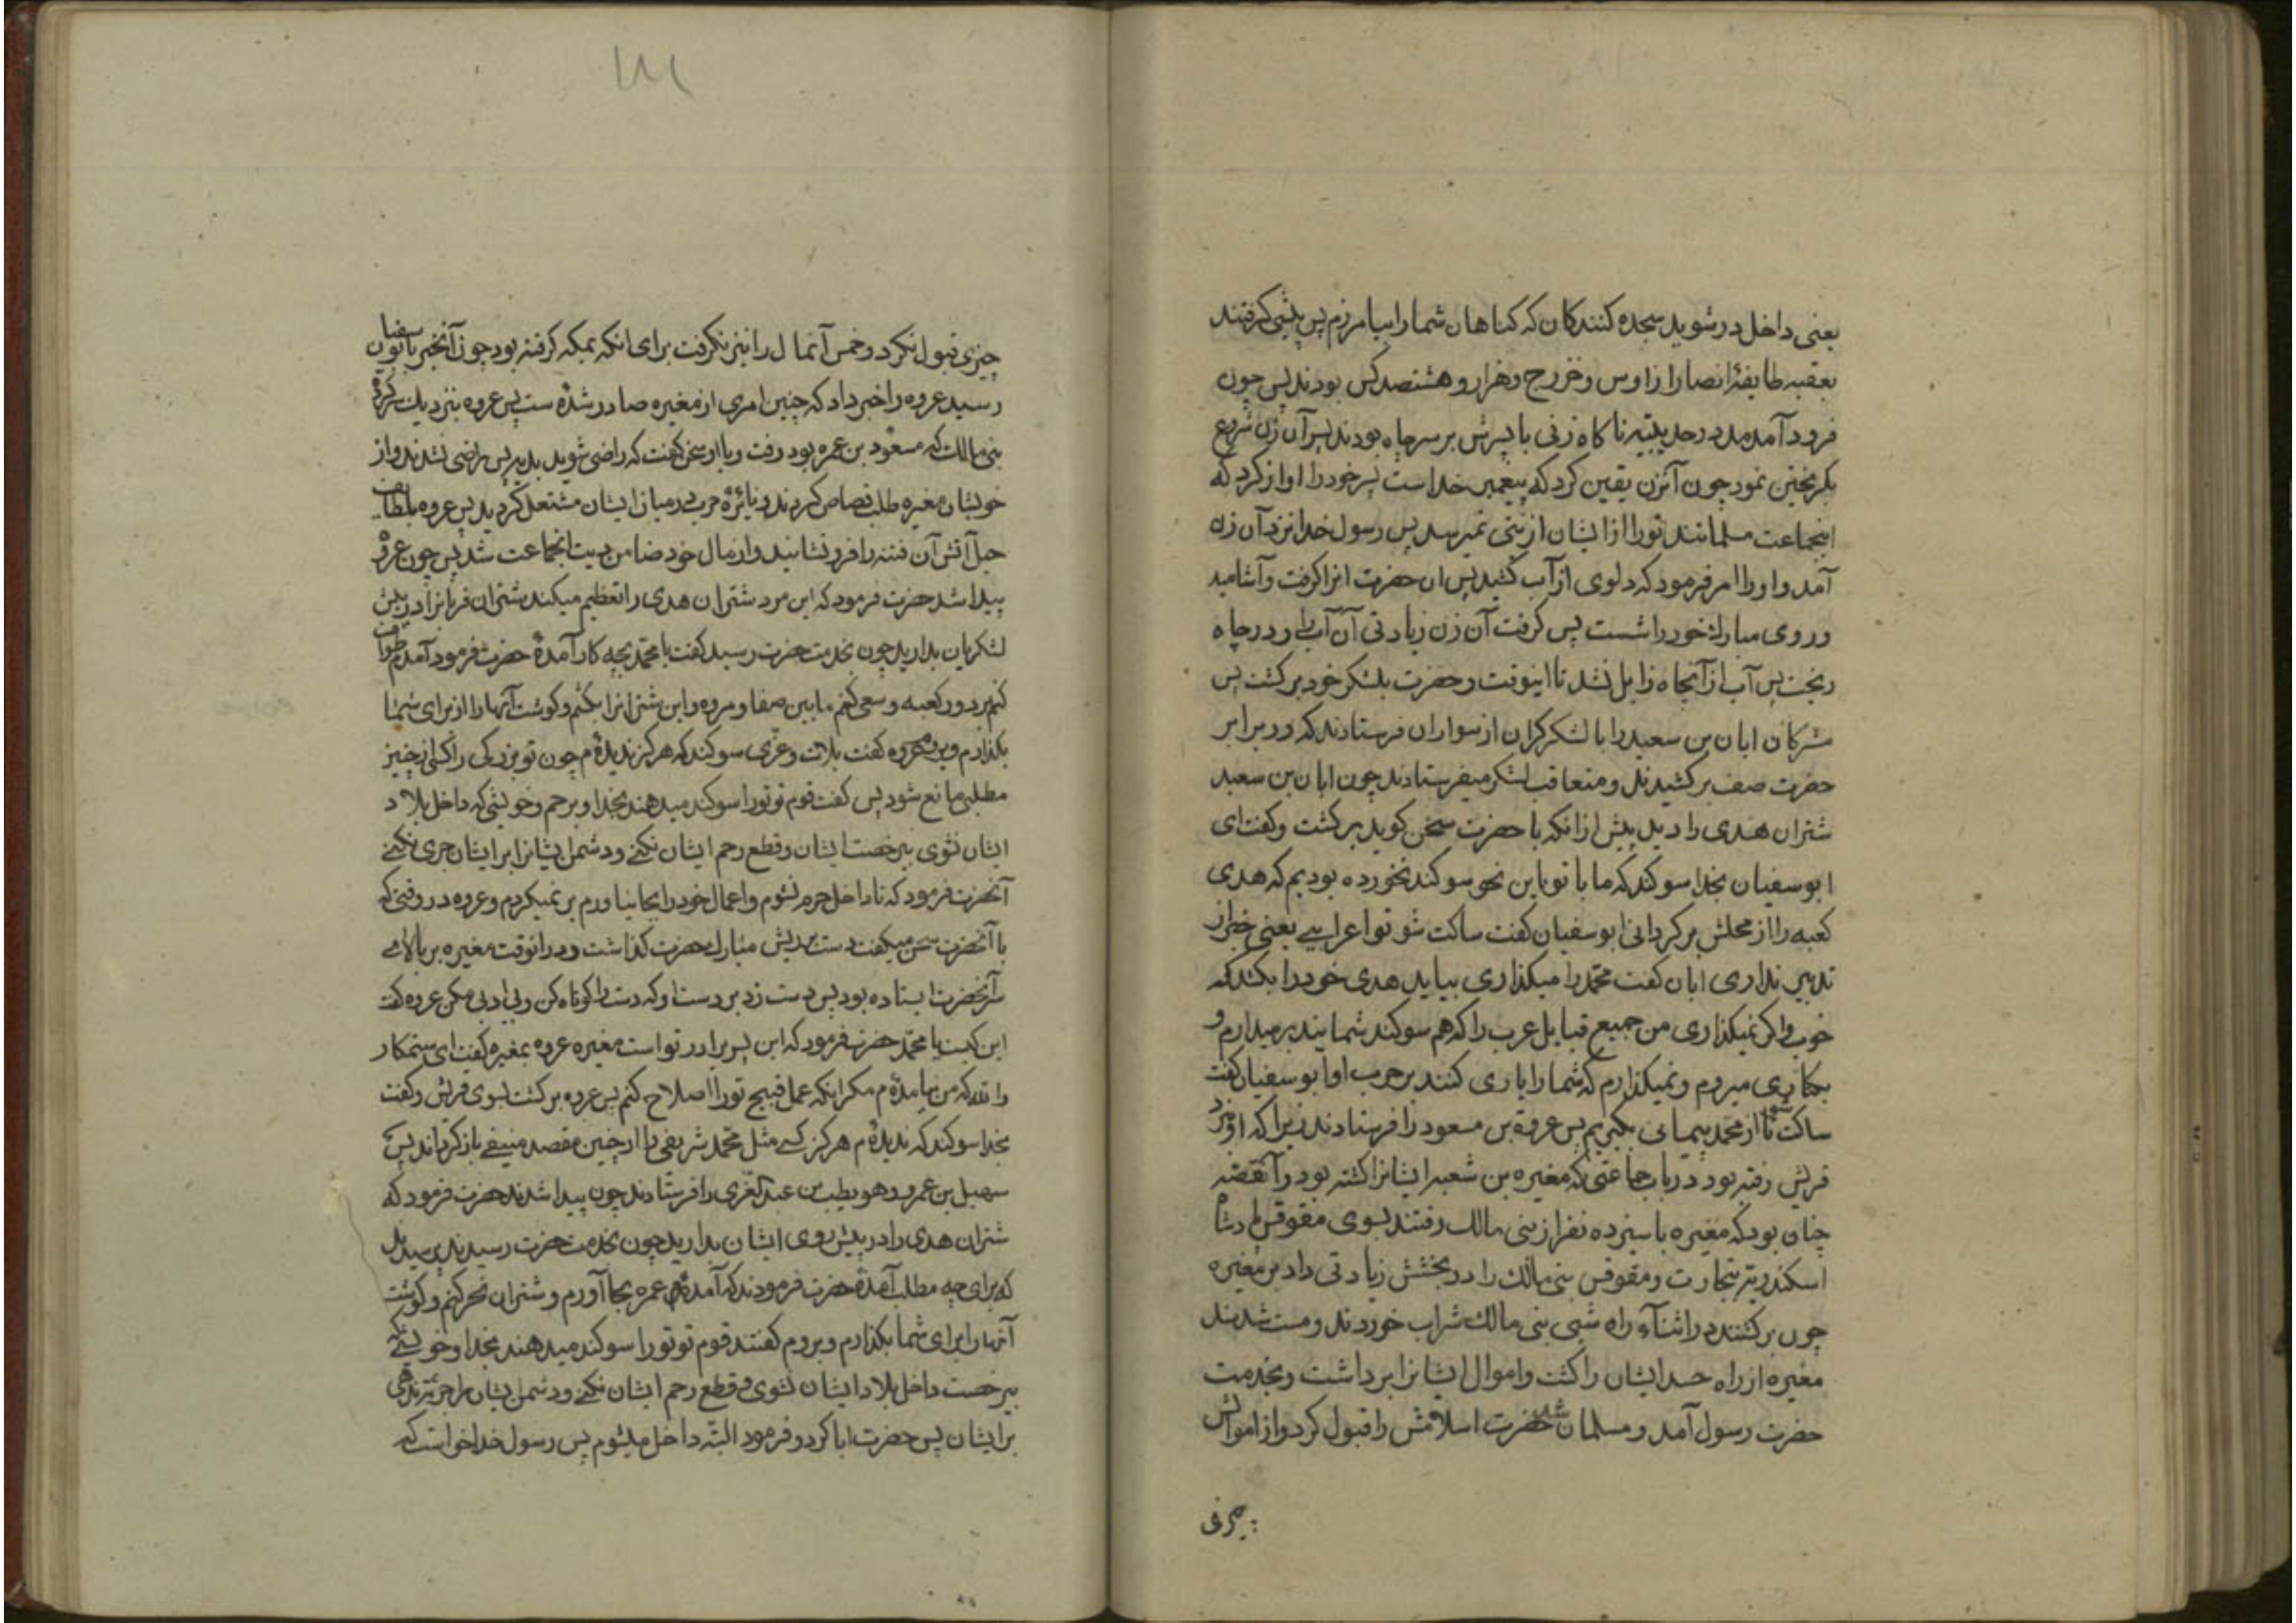 یعنی داخل در شوید سجده کنندکان که کناهان شما را بیامرزم پس پیشی کرفتند
بعقبه طایفهٔ انصار از اوس و خزرج و هزار و هشتصد کس بودند پس چون
فرود آمدند در حدیبیّه ناکاه زنی با پسرش بر سر چاه بودند پس آن زن شروع
بکریختن نمود چون آنزن یقین کرد که پیغمبر خداست پسر خود را اواز کرد که
اینجماعت مسلمانند تو را از ایشان ازیتی نمیرسد پس رسول خدا نزد آن زن
آمد و او را امر فرمود که دلوی از آب کشید پس ان حضرت انرا کرفت و آشامید
و روی مبارك خود را شست پس کرفت آن زن زیادتی آن آب را و در چاه
ریخت پس آب از آنچاه زایل نشد تا اینوقت و حضرت بلشکر خود برکشت پس
مشرکان ابان بن سعید را با لشکر کران از سواران فرستادند که در برابر
حضرت صف برکشیدند و متعاقب لشکر میفرستادند چون ابان بن سعید
شتران هدی را دید پیش از انکه با حضرت سخن کوید برکشت و کفت ای
ابوسفیان بخدا سوکند که ما با تو باین نحو سوکند نخورده بودیم که هدی
کعبه را از محلش برکردانی ابوسفیان کفت ساکت شو تو اعرابیے یعنی خبر از
تدبیر نداری ابان کفت محمّد را میکذاری بیاید هدی خود را بکشد که
خوب و اکر نمیکذاری من جمیع قبایل عرب را که هم سوکند شمایند بر میدارم و
بکناری میروم و نمیکذارم که شما را یاری کنند بر حرب او ابوسفیان کفت
ساکت شو تا از محمد پیمانی بکیریم پس عروة بن مسعود را فرستادند زیرا که او نزد
قریش رفته بود در باب جماعتی که مغیره بن شعبه ایشانرا کشته بود و آنقصّه
چنان بود که مغیره با سیزده نفر از بنی مالك رفتند بسوی مقوقس پادشاه
اسکندریّه بتجارت و مقوقس بنی مالك را در بخشش زیادتی داد بر مغیره
چون برکشتند در اثناء راه شبی بنی مالك شراب خوردند و مست شدند
مغیره از راه حسد ایشان را کشت و اموال ایشانرا برداشت و بخدمت
حضرت رسول آمد و مسلمان شد حضرت اسلامش را قبول کرد و از اموالش
چیزی
چیزی قبول نکرد و خمس آنمال را نیز نکرفت برای انکه بمکر کرفته بود چون آنخبر بابوسفیان
رسید عروه را خبر داد که چنین امری از مغیره صادر شده ست پس عروه بنزدیك سرکردهٔ
بنی مالك که مسعود بن عمره بود رفت و با او سخن کفت که راضی شوید بدیه پس راضی نشدند و از
خویشان مغیره طلب قصاص کردند و نایرهٔ حرب در میان ایشان مشتعل کردید پس عروه بلطایف
حیل آتش آن فتنه را فرو نشانید و از مال خود ضامن دیت انجماعت شد پس چون عروه
پیدا شد حضرت فرمود که این مرد شتران هدی را تعظیم میکند شتران قربانرا در پیش
لشکریان بدارید چون بخدمت حضرت رسید کفت یا محمّد بچه کار آمدهٔ حضرت فرمود آمدم طواف
کنم بر دور کعبه و سعی کنم مابین صفا و مروه و این شترانرا بکشم و کوشت آنها را از برای شما
بکذارم و بروم عروه کفت بلات و عزّی سوکند که هرکز ندیده ام چون تو بزرکی را کسی از چنین
مطلبی مانع شود پس کفت قوم تو تو را سوکند میدهند بخدا و برحم و خویشی که داخل بلاد
ایشان نشوی بیرخصت ایشان و قطع رحم ایشان نکنے و دشمن ایشانرا بر ایشان جری نکنے
آنحضرت فرمود که تا داخل حرم نشوم و اعمال خود را بجا نیاورم بر نمیکردم و عروه در وقتی که
با آنحضرت سخن میکفت دست بریش مبارك حضرت کذاشت و در انوقت مغیره بر بالای
سر آنحضرت ایستاده بود پس دست زد بر دست او که دست را کوتاه کن و بی ادبی مکن عروه کفت
این کیست یا محمّد حضرت فرمود که این پسر برادر تو است مغیره عروه بمغیره کفت ای ستمکار
والله که من نیامده ام مکر اینکه عمل قبیح تو را اصلاح کنم پس عروه برکشت بسوی قریش و کفت
بخدا سوکند که ندیده ام هرکز کسے مثل محمّد شریفی را از چنین مقصد منیفے بازکردانند پس
سهیل بن عمرو و هویطب بن عبد العزی را فرستادند چون پیدا شدند حضرت فرمود که
شتران هدی را در پیش روی ایشان بدارید چون بخدمت حضرت رسیدند پرسیدند
که برای چه مطلب آمدهٔ حضرت فرمودند که آمده ام عمره بجا آورم و شتران نحر کنم و کوشت
آنها را برای شما بکذارم و بروم کفتند قوم تو تو را سوکند میدهند بخدا و خویشے که
بیرخصت داخل بلاد ایشان نشوی و قطع رحم ایشان نکنے و دشمن ایشان را جرئت ندهی
بر ایشان پس حضرت ابا کرد و فرمود البتّه داخل میشوم پس رسول خدا خواست که